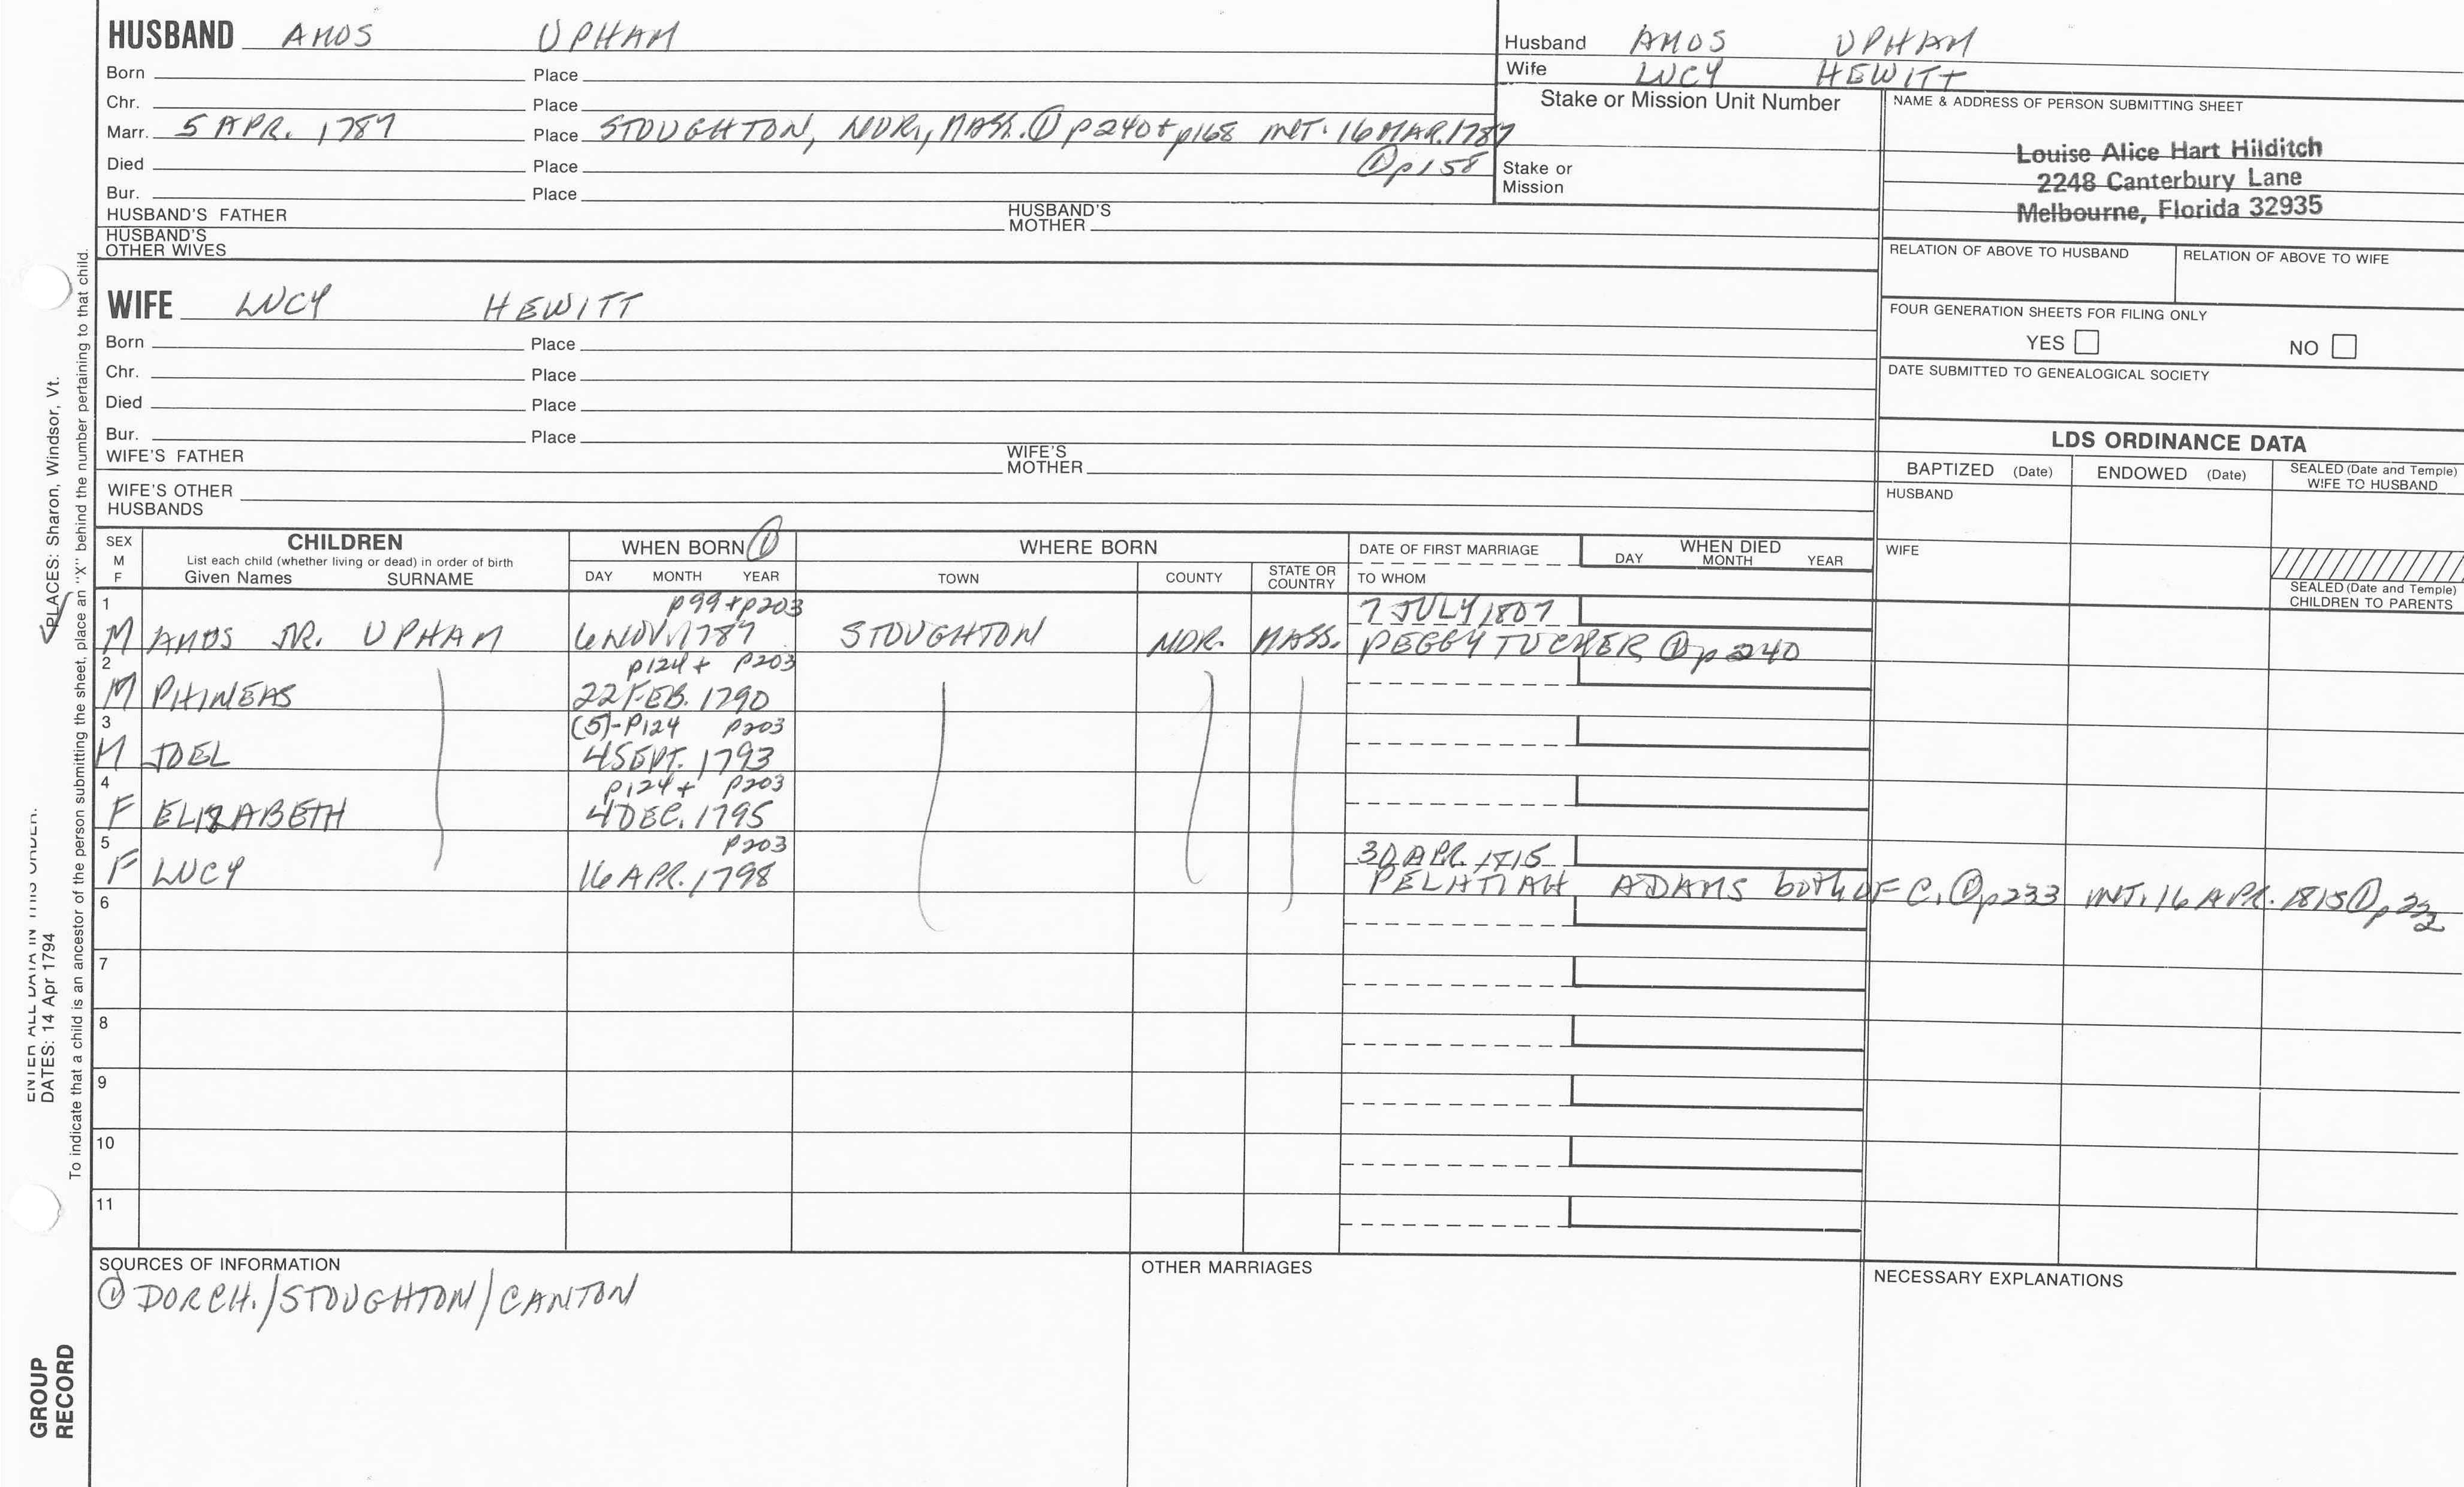 HUSBAND AMOS UPHAM
Born Place
Chr. Place
Marr. 5 APR. 1787 Place STOUGHTON, NOR., MASS. ① p240 + p168 INT. 16 MAR. 1787
① p158
Died Place
Bur. Place
HUSBAND'S FATHER HUSBAND'S MOTHER
HUSBAND'S OTHER WIVES
Husband AMOS UPHAM
Wife LUCY HEWITT
Stake or Mission Unit Number
Stake or
Mission
NAME & ADDRESS OF PERSON SUBMITTING SHEET
Louise Alice Hart Hilditch
2248 Canterbury Lane
Melbourne, Florida 32935
RELATION OF ABOVE TO HUSBAND RELATION OF ABOVE TO WIFE
FOUR GENERATION SHEETS FOR FILING ONLY
YES NO
DATE SUBMITTED TO GENEALOGICAL SOCIETY
WIFE LUCY HEWITT
Born Place
Chr. Place
Died Place
Bur. Place
WIFE'S FATHER WIFE'S MOTHER
WIFE'S OTHER HUSBANDS
LDS ORDINANCE DATA
BAPTIZED (Date) ENDOWED (Date) SEALED (Date and Temple) WIFE TO HUSBAND
HUSBAND
WIFE
SEALED (Date and Temple) CHILDREN TO PARENTS
SEX
M
F
CHILDREN
List each child (whether living or dead) in order of birth
Given Names SURNAME
WHEN BORN ①
DAY MONTH YEAR
WHERE BORN
TOWN COUNTY STATE OR COUNTRY
DATE OF FIRST MARRIAGE
TO WHOM
WHEN DIED
DAY MONTH YEAR
1 p99 + p203 7 JULY 1807
M AMOS JR. UPHAM 6 NOV. 1787 STOUGHTON NOR. MASS. PEGGY TUCKER ① p240
2 p124 + p203
M PHINEAS 22 FEB. 1790
3 (5)-P124 p203
M JOEL 4 SEPT. 1793
4 p124 + p203
F ELIZABETH 4 DEC. 1795
5 p203 30 APR. 1815
F LUCY 16 APR. 1798 PELATIAH ADAMS both OF C. ① p233 INT. 16 APR. 1815 ① p222
6
7
8
9
10
11
SOURCES OF INFORMATION
① DORCH./STOUGHTON/CANTON
OTHER MARRIAGES
NECESSARY EXPLANATIONS
PLACES: Sharon, Windsor, Vt.
ENTER ALL DATA IN THIS ORDER:
DATES: 14 Apr 1794
To indicate that a child is an ancestor of the person submitting the sheet, place an "X" behind the number pertaining to that child.
GROUP
RECORD